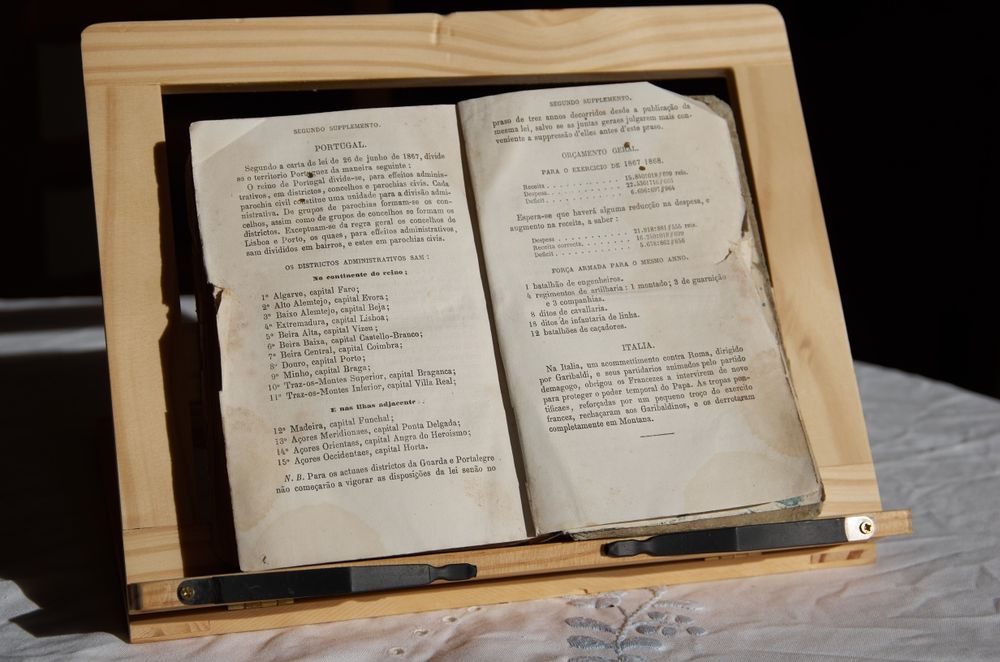 SEGUNDO SUPPLEMENTO.
PORTUGAL.
Segundo a carta de lei de 26 de junho de 1867, divide
se o territorio Portuguez da maneira seguinte :
O reino de Portugal divide-se, para effeitos adminis-
trativos, em districtos, concelhos e parochias civis. Cada
parochia civil constitue uma unidade para a divisão admi-
nistrativa. De grupos de parochias formam-se os con-
celhos, assim como de grupos de concelhos se formam os
districtos. Exceptuam-se da regra geral os concelhos de
Lisboa e Porto, os quaes, para effeitos administrativos,
sam divididos em bairros, e estes em parochias civis.
OS DISTRICTOS ADMINISTRATIVOS SAM :
No continente do reino ;
1º Algarve, capital Faro;
2º Alto Alemtejo, capital Evora;
3º Baixo Alemtejo, capital Beja;
4º Extremadura, capital Lisboa;
5º Beira Alta, capital Vizeu;
6º Beira Baixa, capital Castello-Branco;
7º Beira Central, capital Coimbra;
8º Douro, capital Porto;
9º Minho, capital Braga;
10º Traz-os-Montes Superior, capital Bragança;
11º Traz-os-Montes Inferior, capital Villa Real;
E nas ilhas adjacente
12º Madeira, capital Funchal;
13º Açores Meridionaes, capital Ponta Delgada;
14º Açores Orientaes, capital Angra do Heroismo;
15º Açores Occidentaes, capital Horta.
N. B. Para os actuaes districtos da Guarda e Portalegre
não começarão a vigorar as disposições da lei senão no
SEGUNDO SUPPLEMENTO.
praso de tres annos decorridos desde a publicação da
mesma lei, salvo se as juntas geraes julgarem mais con-
veniente a suppressão d'elles antes d'este praso.
ORÇAMENTO GERAL.
PARA O EXERCICIO DE 1867 1868.
Receita . . . . . . . . . . reis.
Despesa . . . . . . . . . .
Deficit . . . . . . . . . .
Espera-se que haverá alguma reducção na despesa, e
augmento na receita, a saber :
Despesa . . . . . . . . . . reis.
Receita correcta. . . . . . . .
Deficit. . . . . . . . . . .
FORÇA ARMADA PARA O MESMO ANNO.
1 batalhão de engenheiros.
4 regimentos de artilharia : 1 montado; 3 de guarnição
e 3 companhias.
8 ditos de cavallaria.
18 ditos de infantaria de linha.
12 batalhões de caçadores.
ITALIA.
Na Italia, um acommettimento contra Roma, dirigido
por Garibaldi, e seus partidarios animados pelo partido
demagogo, obrigou os Francezes a intervirem de novo
para proteger o poder temporal do Papa. As tropas pon-
tificaes, reforçadas por um pequeno troço do exercito
francez, rechaçaram aos Garibaldinos, e os derrotaram
completamente em Montana.